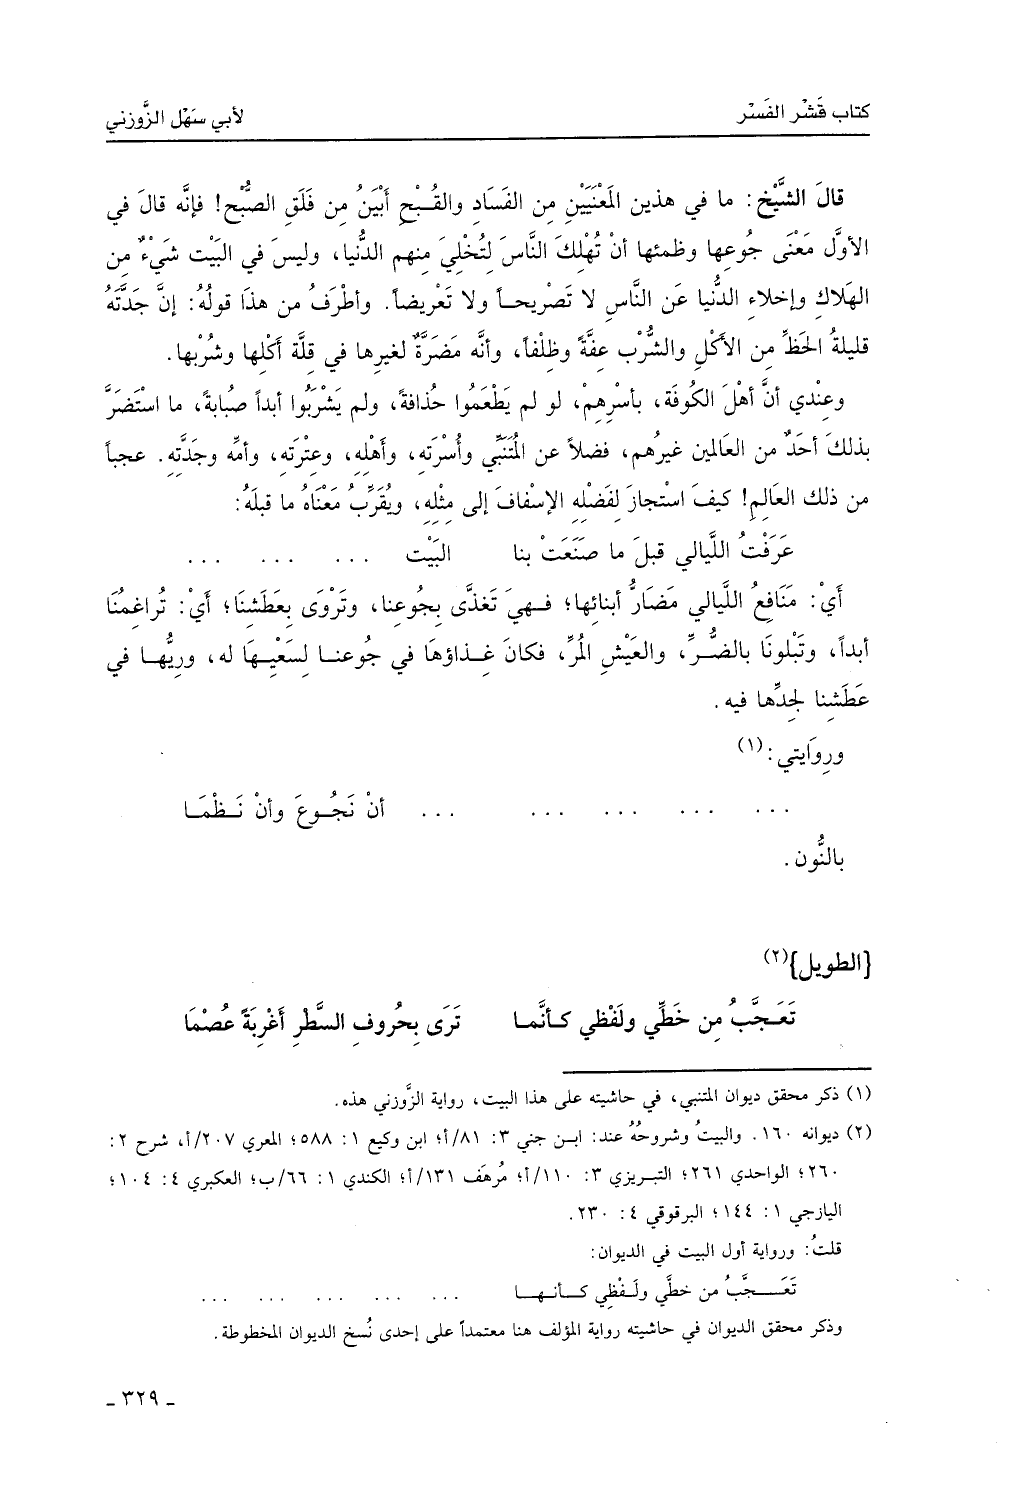 كتاب قَشْر الفَسْر لأبي سَهْل الزَّوْزني
قالَ الشَّيْخ: ما في هذين المَعْنَيَيْنِ مِن الفَسَادِ والقُبْحِ أَبْيَنُ مِن فَلَقِ الصُّبْح! فإنَّه قالَ في
الأوَّل مَعْنَى جُوعِها وظمئها أنْ تُهْلِكَ النَّاسَ لِتُخْلِيَ مِنهم الدُّنيا، وليسَ في البَيْت شَيْءٌ مِن
الهَلاكِ وإخلاءِ الدُّنيا عَن النَّاسِ لا تَصْريحاً ولا تَعْريضاً. وأطْرَفُ من هذَا قولُهُ: إنَّ جَدَّتَهُ
قليلةُ الحَظِّ مِن الأكْلِ والشُّرْب عِفَّةً وظَلْفاً، وأنَّه مَضَرَّةٌ لغيرِها في قِلَّة أكْلِها وشُرْبها.
وعِنْدي أنَّ أهْلَ الكُوفَة، بأسْرِهِمْ، لو لم يَطْعَمُوا حُذافةً، ولم يَشْرَبُوا أبداً صُبابةً، ما اسْتَضَرَّ
بذلكَ أحَدٌ من العالَمين غيرُهم، فضلاً عن المُتَنَبِّي وأُسْرَتِه، وأهْلِه، وعِتْرَتِه، وأمِّه وجَدَّتِه. عجباً
من ذلك العَالِمِ! كيفَ اسْتجازَ لفَضْلِهِ الإسْفافَ إلى مِثْلِهِ، ويُقَرِّبُ مَعْنَاهُ ما قبلَهُ:
عَرَفْتُ اللَّيالي قبلَ ما صَنَعَتْ بنا البَيْت ... ... ...
أَيْ: مَنَافِعُ اللَّيالي مَضَارُّ أبنائِها؛ فهيَ تَغذَّى بجُوعِنا، وتَرْوَى بِعَطَشِنَا؛ أيْ: تُراغِمُنَا
أبداً، وتَبْلونَا بالضُّرِّ، والعَيْشِ المُرِّ، فكانَ غِذاؤهَا في جُوعنا لسَعْيِهَا له، وريُّها في
عَطَشِنا لجِدِّها فيه.
وروَايتي:(١)
... ... ... ... ... أنْ نَجُوعَ وأنْ نَظْمَا
بالنُّون.
[الطويل](٢)
تَعَجَّبُ مِن خَطِّي ولَفْظي كأنَّما تَرَى بِحُروفِ السَّطْرِ أغْرِبَةً عُصْمَا
(١) ذكر محقق ديوان المتنبي، في حاشيته على هذا البيت، رواية الزَّوزني هذه.
(٢) ديوانه ١٦٠. والبيتُ وشروحُهُ عند: ابن جني ٣: ٨١/أ؛ ابن وكيع ١: ٥٨٨؛ المعري ٢٠٧/أ، شرح ٢:
٢٦٠؛ الواحدي ٢٦١؛ التبريزي ٣: ١١٠/أ؛ مُرهَف ١٣١/أ؛ الكندي ١: ٦٦/ب؛ العكبري ٤: ١٠٤؛
اليازجي ١: ١٤٤؛ البرقوقي ٤: ٢٣٠.
قلتُ: ورواية أول البيت في الديوان:
تَعَجَّبُ من خطَّي ولَفْظِي كأنها ... ... ... ... ...
وذكر محقق الديوان في حاشيته رواية المؤلف هنا معتمداً على إحدى نُسخ الديوان المخطوطة.
- ٣٢٩ -